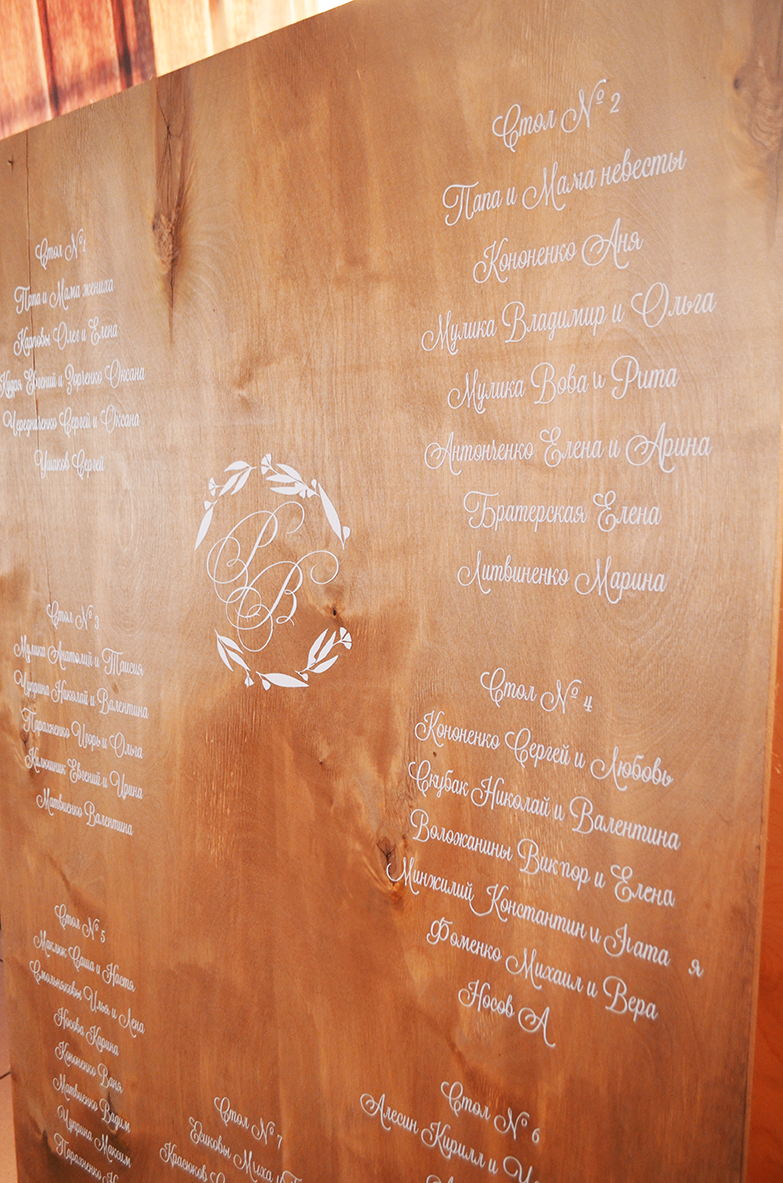 Стол №1
Папа и Мама жениха
Карповы Олег и Елена
Кудря Евгений и Зорченко Оксана
Чередниченко Сергей и Оксана
Ушаков Сергей
Стол № 2
Папа и Мама невесты
Кононенко Аня
Мулика Владимир и Ольга
Мулика Вова и Рита
Антонченко Елена и Арина
Братерская Елена
Литвиненко Марина
РВ
Стол № 3
Мулика Анатолий и Таисия
Чуприна Николай и Валентина
Парахненко Игорь и Ольга
Килюшник Евгений и Ирина
Матвиенко Валентина
Стол № 4
Кононенко Сергей и Любовь
Скубак Николай и Валентина
Воложанины Виктор и Елена
Минжилий Константин и я
Фоменко Михаил и Вера
Носов А
Стол № 5
Маклюк Саша и Настя
Смольняковы Илья и Лена
Носова Карина
Кононенко Ваня
Матвиенко Вадим
Чуприна Максим
Парахненко Н
Стол № 6
Алесин Кирилл и
Стол № 7
Есиковы Миха и